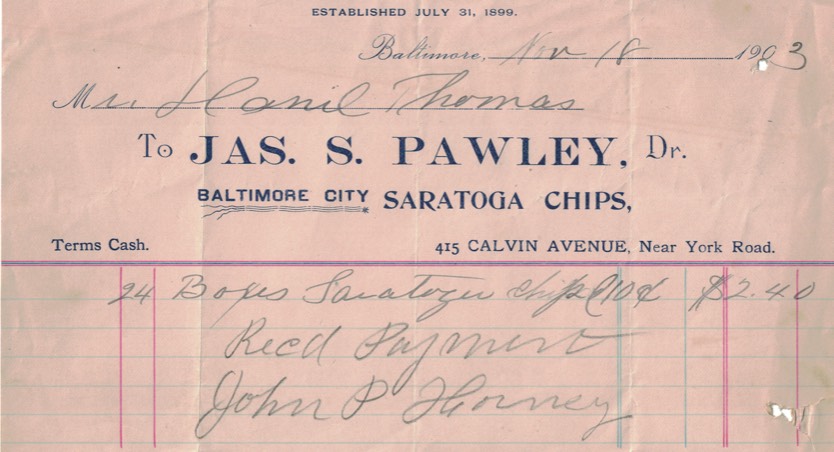 ESTABLISHED JULY 31, 1899.
Baltimore, Nov 18 1903
Mr. Thomas
To JAS. S. PAWLEY, Dr.
BALTIMORE CITY SARATOGA CHIPS,
Terms Cash. 415 CALVIN AVENUE, Near York Road.
24 Boxes Saratoga Chips @ 10¢ $2.40
Recd Payment
John P